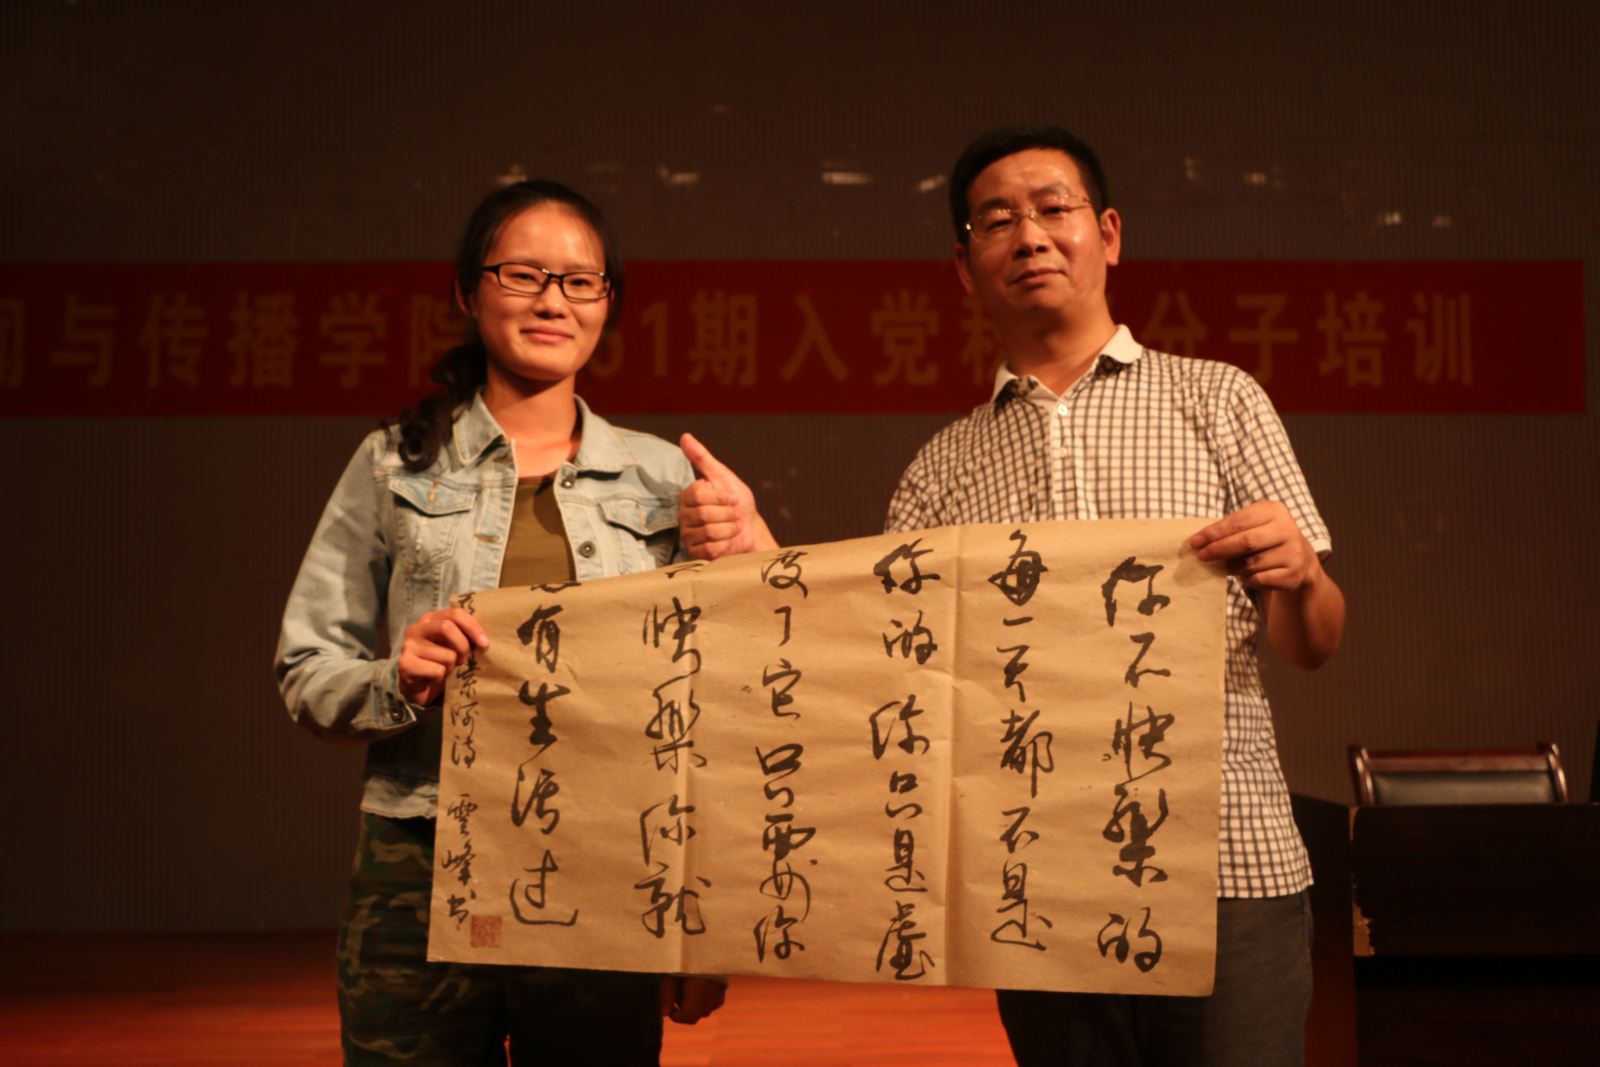 闻与传播学院 61期入党积 分子培训
你不快樂的
每一天都不是
你的你只是虛
度了它只要你
不快樂你就
有生活过
索阿诗 雲峰书